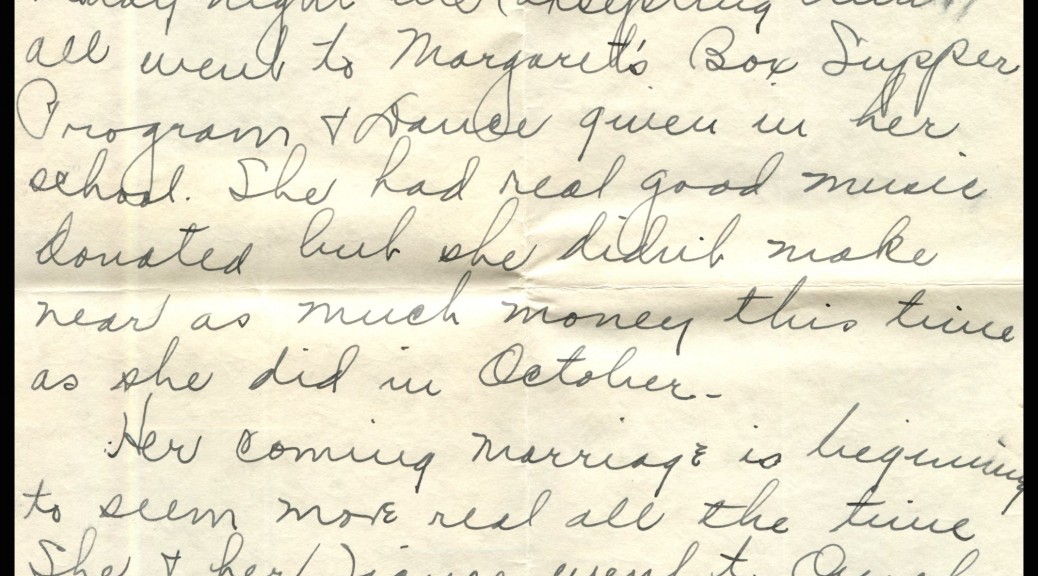 night we
all went to Margaret's Box Supper
Program & Dance given in her
school. She had real good music
donated but she didn't make
near as much money this time
as she did in October-
Her coming marriage is beginning
to seem more real all the time
She & her fiance went to